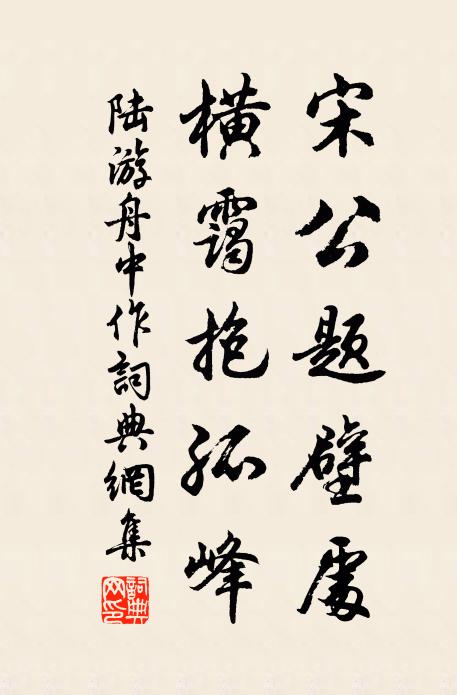 宋公題壁處
橫靄抱孤峰
陸游舟中作詞典網集
詞典
网印